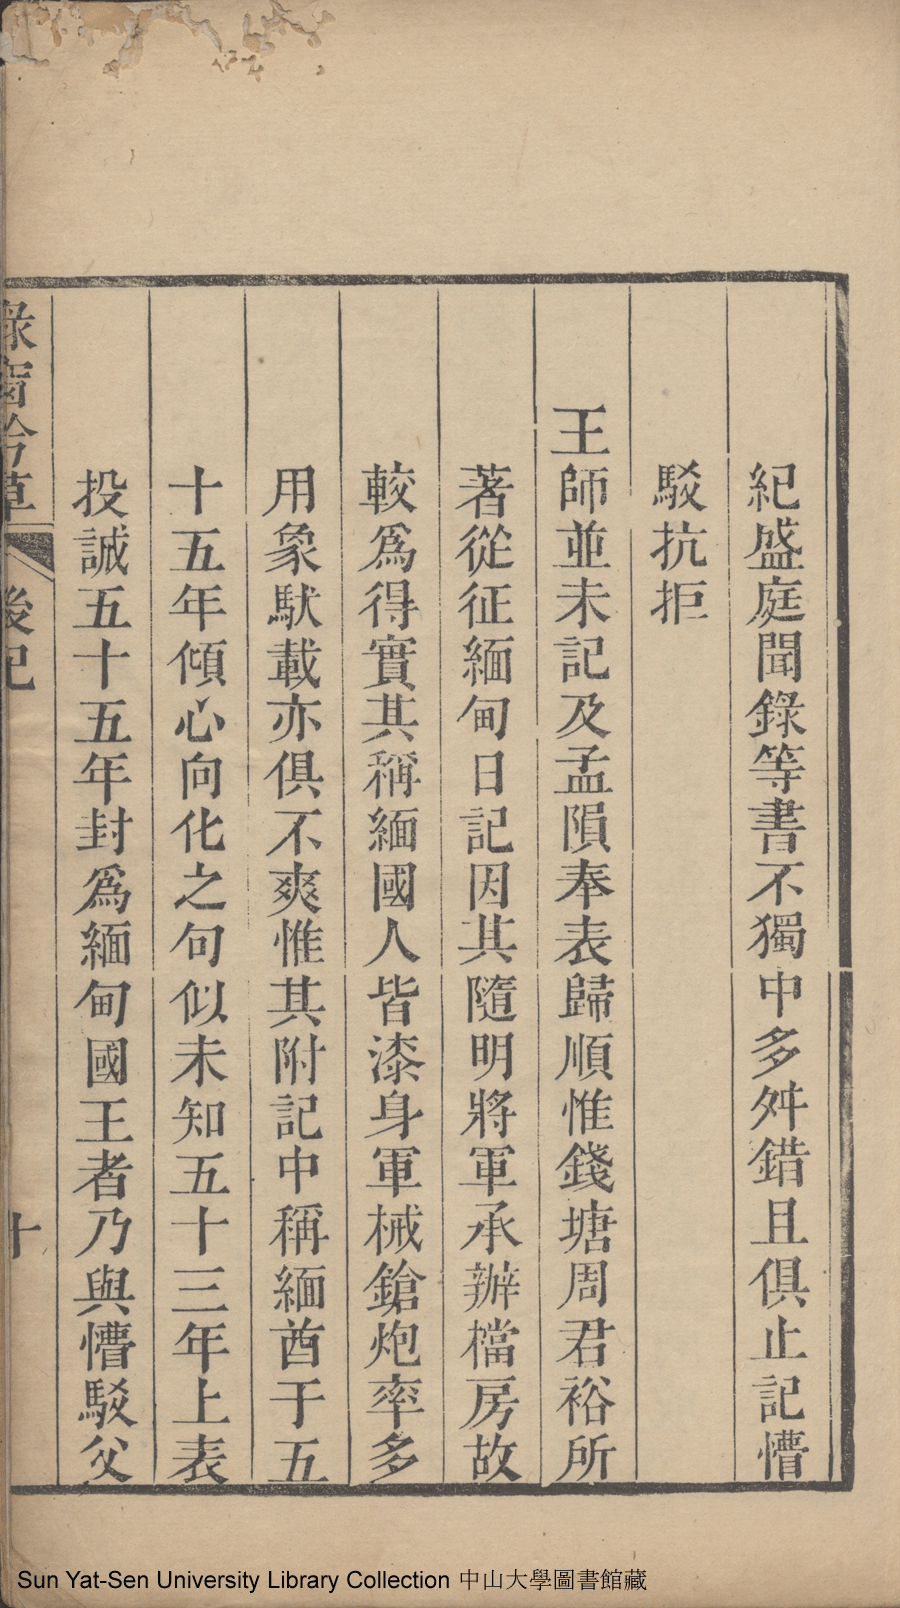 紀盛庭聞錄等書不獨中多舛錯且俱止記懵
駁抗拒
王師並未記及孟隕奉表歸順惟錢塘周君裕所
著從征緬甸日記因其隨明將軍承辦檔房故
較爲得實其稱緬國人皆漆身軍械鎗炮率多
用象馱載亦俱不爽惟其附記中稱緬酋于五
十五年傾心向化之句似未知五十三年上表
投誠五十五年封爲緬甸國王者乃與懵駁父
後記
十
Sun Yat-Sen University Library Collection 中山大學圖書館藏